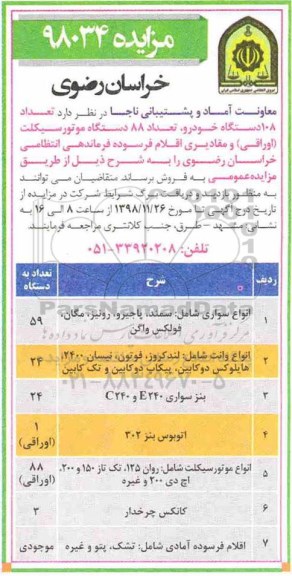 مزایده ۹۸۰۳۴
خراسان رضوی
معاونت آماد و پشتیبانی ناجا در نظر دارد تعداد
۱۰۸دستگاه خودرو، تعداد ۸۸ دستگاه موتورسیکلت
(اوراقی) و مقادیری اقلام فرسوده فرماندهی انتظامی
خراسان رضوی را به شرح ذیل از طریق
مزایده‌عمومی به فروش برساند متقاضیان می توانند
به منظور بازدید و دریافت برگ شرایط شرکت در مزایده از
تاریخ درج آگهی تا مورخ ۱۳۹۸/۱۱/۲۶ از ساعت ۸ الی ۱۶ به
نشانی مشهد - طرق، جنب کلانتری مراجعه فرمایند.
تلفن: ۳۳۹۲۰۲۰۸-۰۵۱
ردیف شرح تعداد به دستگاه
۱ انواع سواری شامل: سمند، پاجیرو، رونیز، مگان، فولکس واگن ۵۹
۲ انواع وانت شامل: لندکروز، فوتون، نیسان ۲۴۰۰، هایلوکس دوکابین، پیکاپ دوکابین و تک کابین ۲۴
۳ بنز سواری E۲۴۰ و C۲۴۰ ۲۴
۴ اتوبوس بنز ۳۰۲ ۱ (اوراقی)
۵ انواع موتورسیکلت شامل: روان ۱۲۵، تک تاز ۱۵۰ و ۲۰۰، اچ دی ۲۰۰ و غیره ۸۸ (اوراقی)
۶ کانکس چرخدار ۳
۷ اقلام فرسوده آمادی شامل: تشک، پتو و غیره موجودی
۰۲۱-۸۸۳۴۹۶۷۰-۵